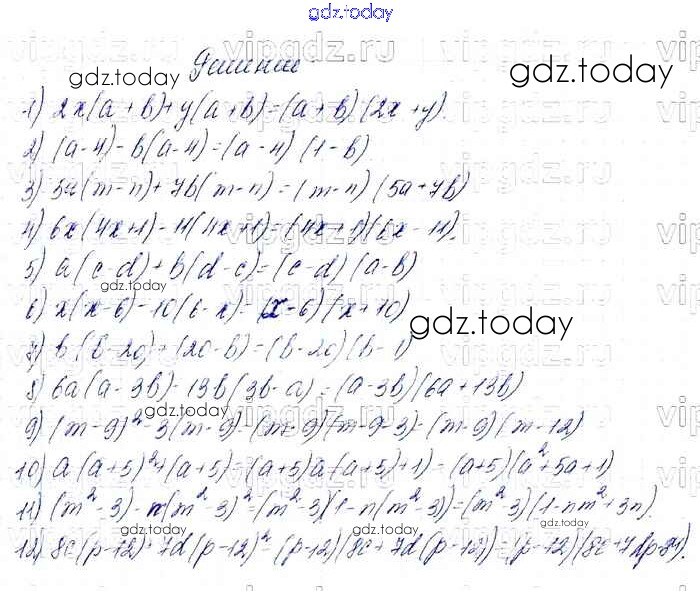 gdz.today
Решение
gdz.today
gdz.today
1) 2x(a+b)+y(a+b)=(a+b)(2x+y).
2) (a-4)-b(a-4)=(a-4)(1-b)
3) 5a(m-n)+7b(m-n)=(m-n)(5a+7b)
4) 6x(4x+1)-11(4x+1)=(4x+1)(6x-11).
5) a(c-d)+b(d-c)=(c-d)(a-b)
gdz.today
6) x(x-6)-10(6-x)=(x-6)(x+10)
gdz.today
7) b(b-20)+(20-b)=(b-20)(b-1)
8) 6a(a-3b)-13b(3b-a)=(a-3b)(6a+13b)
gdz.today
9) (m-9)²-3(m-9)=(m-9)(m-9-3)=(m-9)(m-12)
10) a(a+5)²+(a+5)=(a+5)(a(a+5)+1)=(a+5)(a²+5a+1)
11) (m²-3)-n(m²-3)²=(m²-3)(1-n(m²-3))=(m²-3)(1-nm²+3n).
gdz.today
12) 8c(p-12)+7d(p-12)²=(p-12)(8c+7d(p-12))=(p-12)(8c+7dp-84).
vipgdz.ru